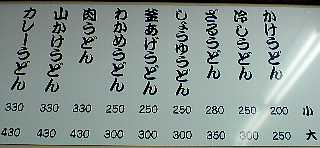 かけうどん
冷しうどん
ざるうどん
しょうゆうどん
釜あげうどん
わかめうどん
肉うどん
山かけうどん
カレーうどん
330 330 330 250 250 250 280 250 200 小
430 430 430 300 300 300 350 300 250 大